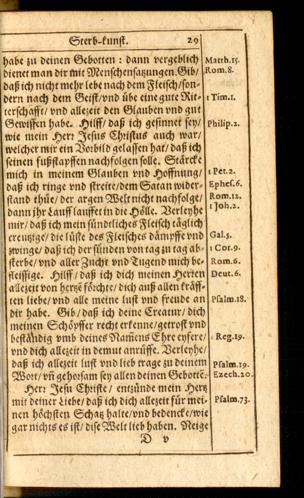 Sterb-kunst. 29
habe zu deinen Gebotten: dann vergeblich
dienet man dir mit Menschensatzungen. Gib/
daß ich nicht mehr lebe nach dem Fleisch/son-
dern nach dem Geist/und übe eine gute Rit-
terschafft/ und allezeit den Glauben und gut
Gewissen habe. Hilff/ daß ich gesinnet sey/
wie mein Herr Jesus Christus auch war/
welcher mir ein Vorbild gelassen hat/daß ich
seinen fußstapffen nachfolgen solle. Stärcke
mich in meinem Glauben und Hoffnung/
daß ich ringe und streite/dem Satan wider-
stand thüe/der argen Welt nicht nachfolge/
dann ihr Lauff lauffet in die Hölle. Verleyhe
mir/daß ich mein sündliches Fleisch täglich
creutzige/die lüste des Fleisches dämpffe und
zwinge/ daß ich der sünden von tag zu tag ab-
sterbe/und aller Zucht und Tugend mich be-
fleissige. Hilff/ daß ich dich meinen Herren
allezeit von hertzē förchte/dich auß allen kräff-
ten liebe/und alle meine lust und freude an
dir habe. Gib/ daß ich deine Creatur/dich
meinen Schöpffer recht erkenne/getrost und
beständig umb deines Namens Ehre eyfere/
und dich allezeit in demut anrüffe. Verleyhe/
daß ich allezeit lust und lieb trage zu deinem
Wort/ uñ gehorsam sey allen deinen Gebottē.
Herr Jesu Christe/ entzünde mein Hertz
mit deiner Liebe/daß ich dich allezeit für mei-
nen höchsten Schatz halte/und bedencke/wie
gar nichts es ist/diese Welt lieb haben. Neige
D v
Matth.15.
Rom.8.
1 Tim.1.
Philip.2.
1 Pet.2.
Ephes.6.
Rom.12.
1 Joh.2.
Gal.5.
1 Cor.9.
Rom.6.
Deut.6.
Psalm.18.
1 Reg.19.
Psalm.19.
Ezech.20.
Psalm.73.